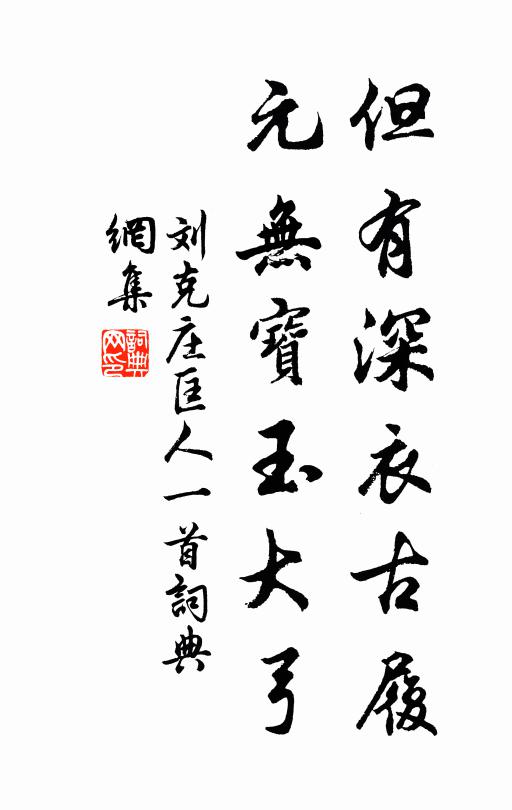 但有深衣古履
元無寶玉大弓
刘克庄匡人一首詞典
網集
詞典
网印